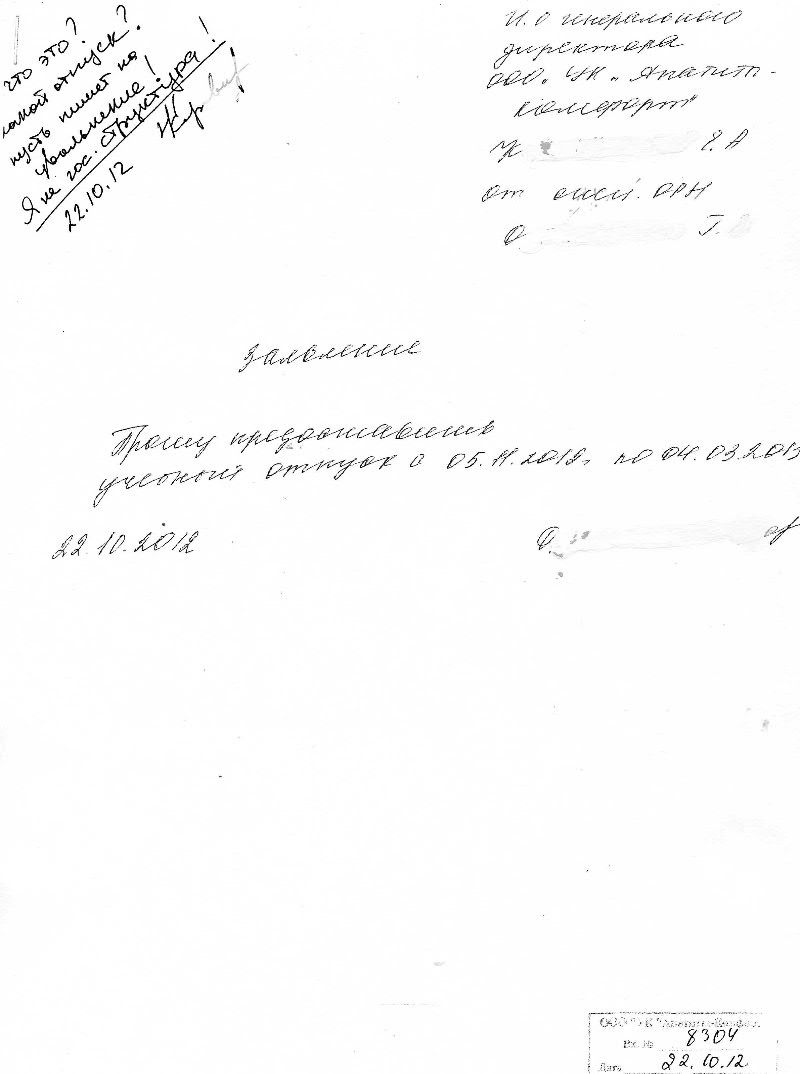 что это?
какой отпуск?
пусть пишет на
увольнение!
Я не гос. структура!
22.10.12
И.о генерального
директора
ООО "УК "Апатит-
комфорт"
К Е.А
от ОРН
О Г.
Заявление
Прошу предоставить
учебный отпуск с 05.11.2012г по 04.03.2013
22.10.2012 О.
ООО "УК "Апатит-Комфорт"
Вх.№ 8304
Дата 22.10.12